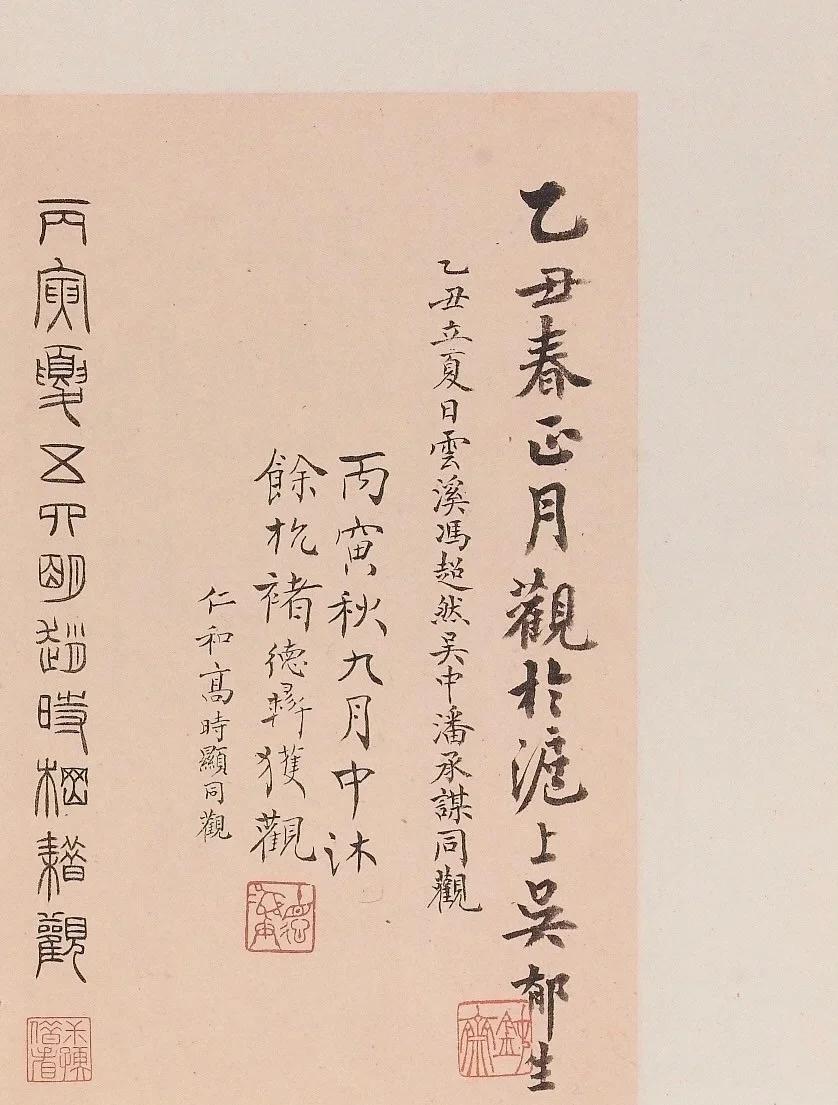 乙丑春正月觀於滬上吳郁生
乙丑立夏日雲溪馮超然吳中潘承謀同觀
丙寅秋九月中沐
餘杭褚德彝獲觀
仁和高時顯同觀
丙寅夏五四明趙時棡藉觀